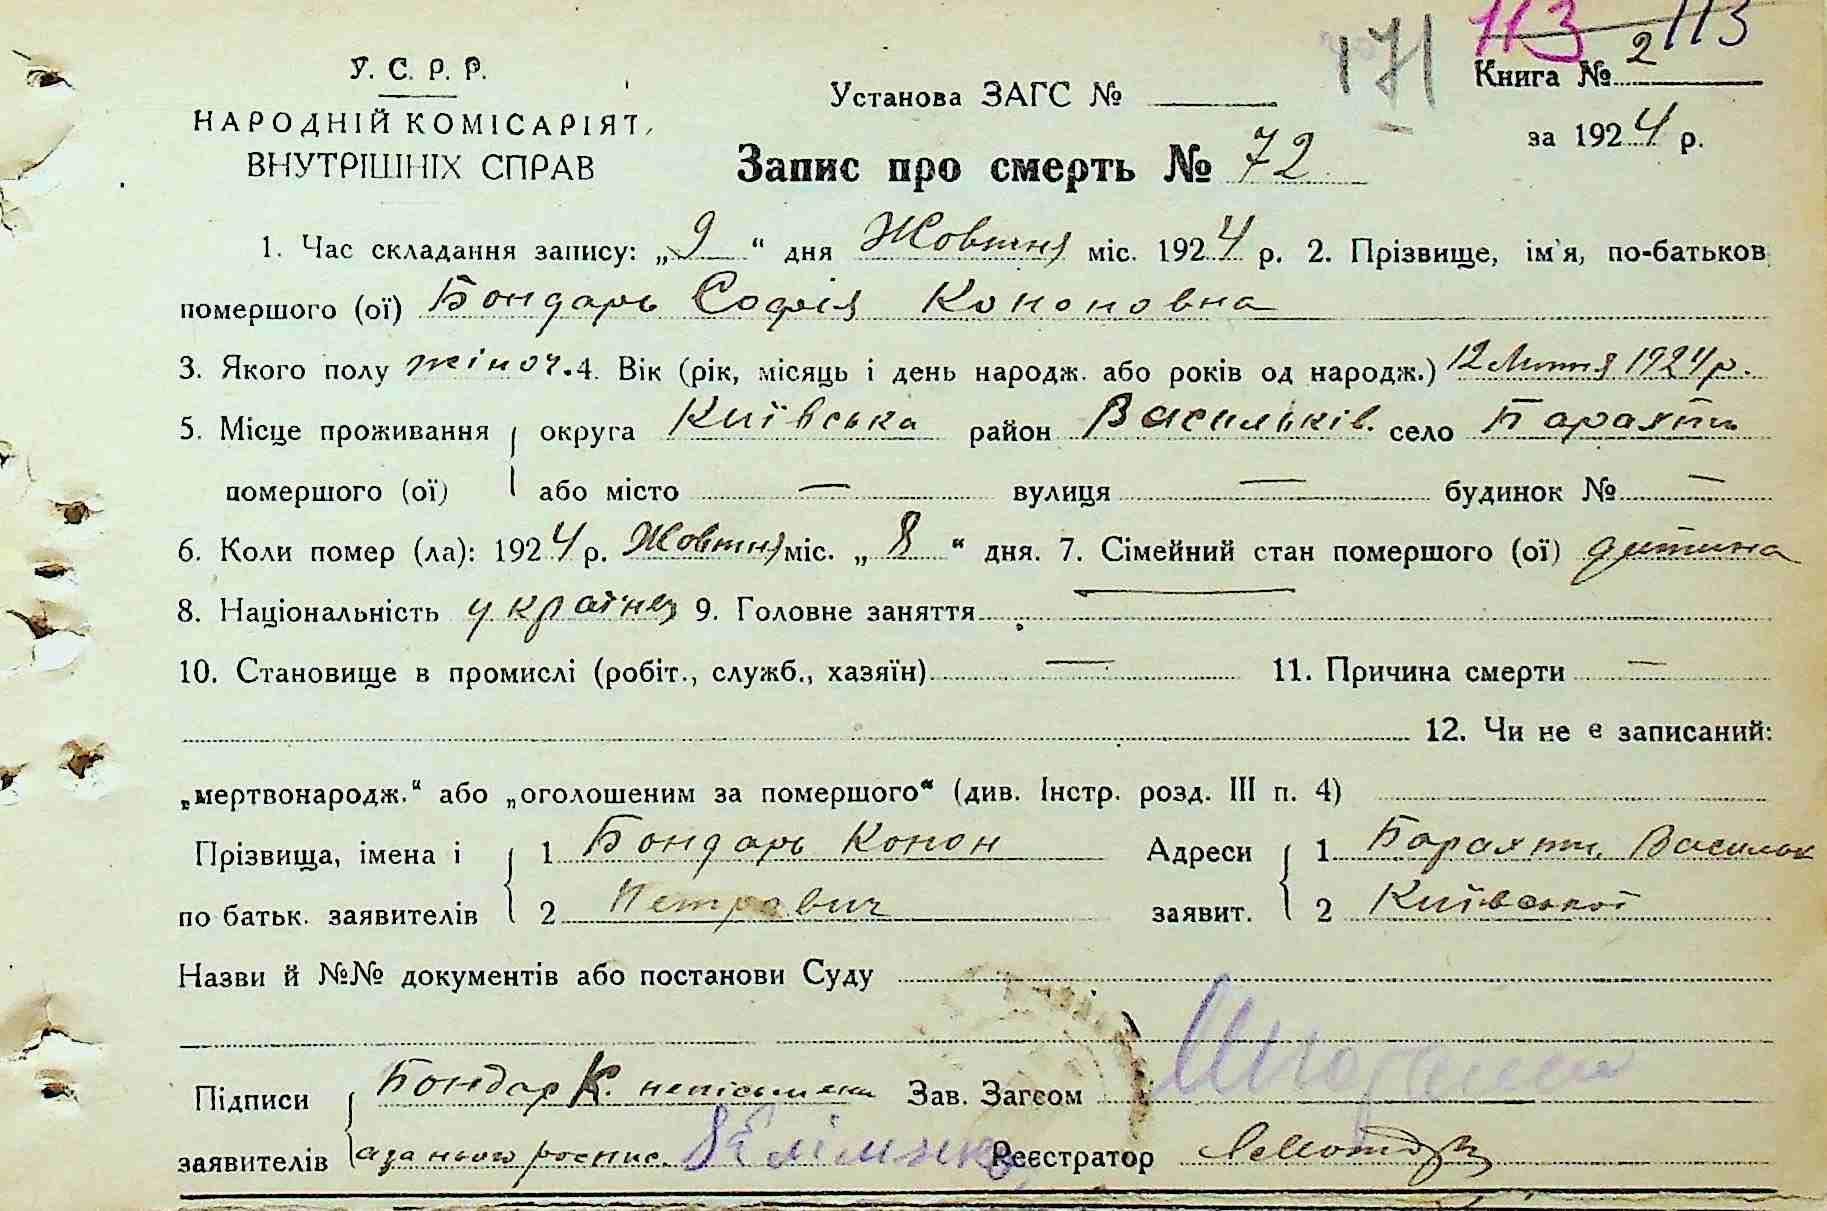 113 113
171
У. С. Р. Р.
НАРОДНІЙ КОМІСАРІЯТ
ВНУТРІШНІХ СПРАВ
Установа ЗАГС №
Книга № 2
за 1924 р.
Запис про смерть № 72
1. Час складання запису: „9“ дня Жовтня міс. 1924 р. 2. Прізвище, ім'я, по-батьков
помершого (ої) Бондарь Софія Кононовна
3. Якого полу жіноч. 4. Вік (рік, місяць і день народж. або років од народж.) 12 Лютня 1924 р.
5. Місце проживання округа Київська район Васильків. село Барахти
помершого (ої) або місто — вулиця — будинок № —
6. Коли помер (ла): 1924 р. Жовтня міс. „8“ дня. 7. Сімейний стан помершого (ої) дитина
8. Національність українец 9. Головне заняття —
10. Становище в промислі (робіт., служб., хазяїн) — 11. Причина смерти —
12. Чи не є записаний:
„мертвонародж.“ або „оголошеним за помершого“ (див. Інстр. розд. III п. 4)
Прізвища, імена і 1 Бондарь Конон Адреси 1 Барахти, Васильк
по батьк. заявителів 2 Петрович заявит. 2 Київської
Назви й №№ документів або постанови Суду
Підписи Бондар К. неписьмени Зав. Загсом
заявителів а за нього роспис. Реєстратор